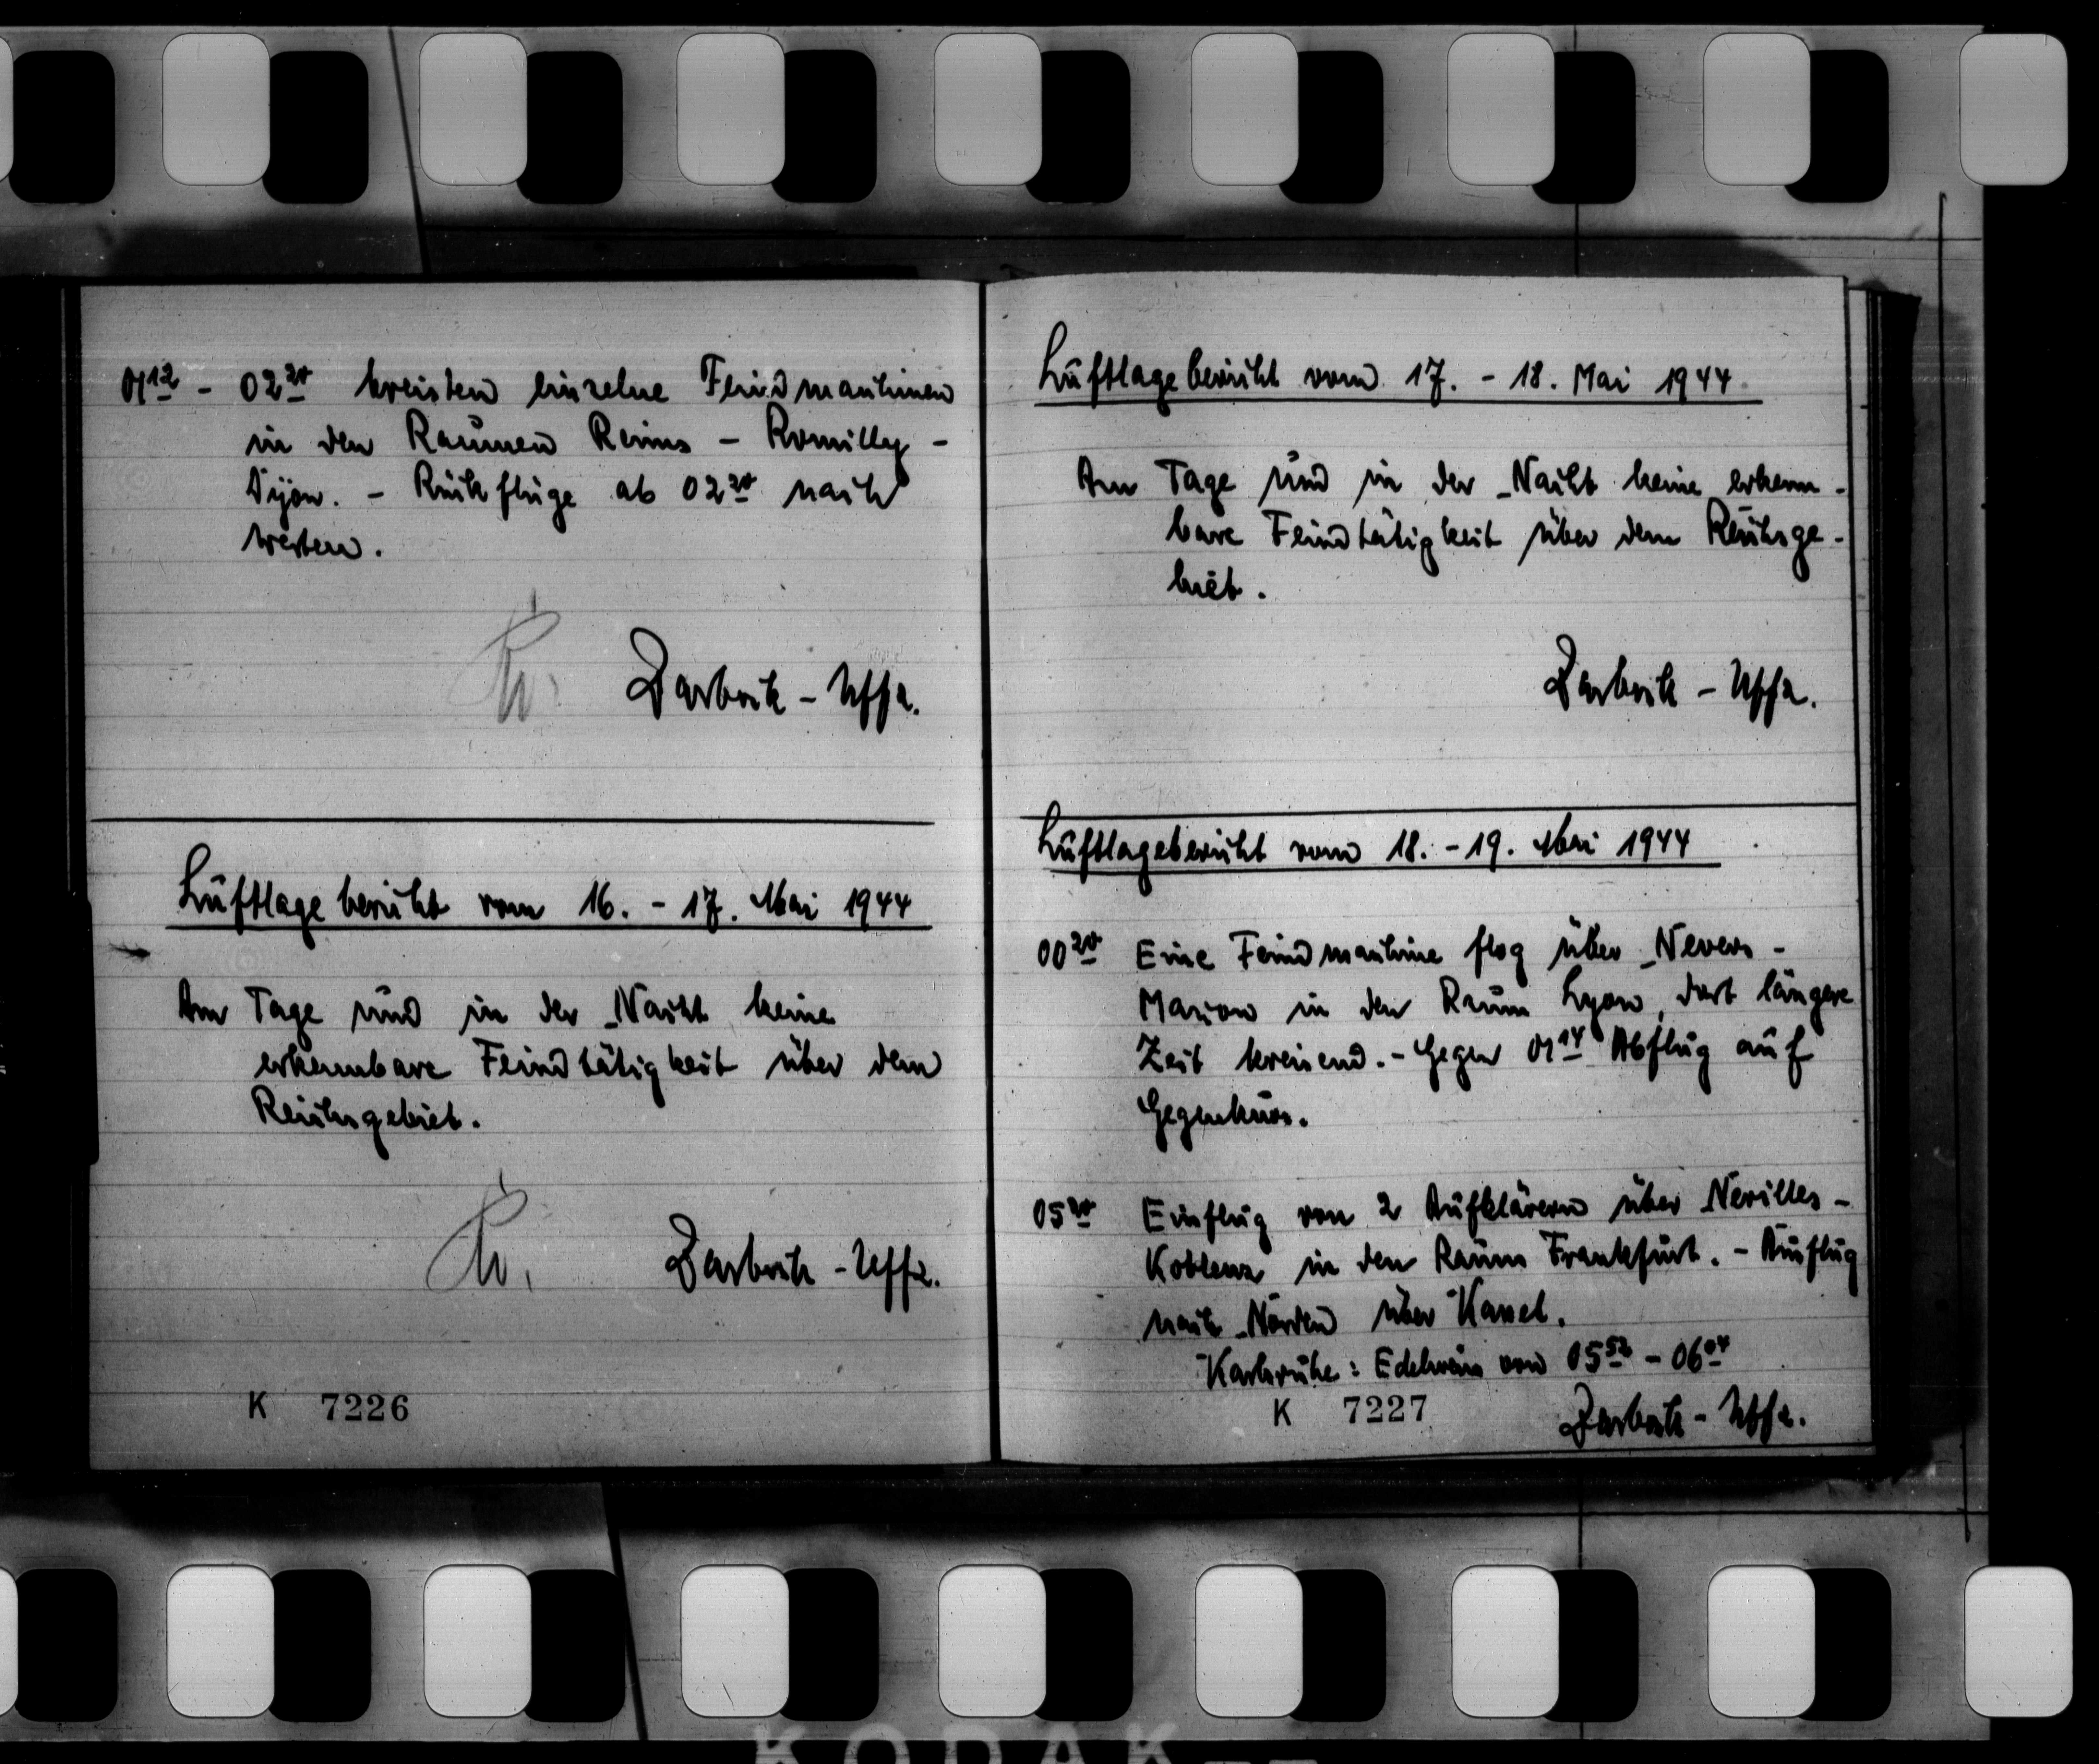 01¹² - 02²⁰ kreisten einzelne Feindmaschinen
in den Räumen Reims - Romilly -
Dijon. - Rückflüge ab 02²⁰ nach
Westen.
Darbrik - Uffz.
Luftlagebericht vom 16. - 17. Mai 1944
Am Tage und in der Nacht keine
erkennbare Feindtätigkeit über dem
Reichsgebiet.
Darbrik - Uffz.
K 7226
Luftlagebericht vom 17. - 18. Mai 1944
Am Tage und in der Nacht keine erkenn-
bare Feindtätigkeit über dem Reichsge-
biet.
Darbrik - Uffz.
Luftlagebericht vom 18. - 19. Mai 1944
00²⁰ Eine Feindmaschine flog über Nevers -
in den Raum Lyon, dort längere
Zeit kreisend. - Gegen 01¹⁴ Abflug auf
Gegenkurs.
05²⁰ Einflug von 2 Aufklärern über
Koblenz in den Raum Frankfurt. - Ausflug
nach Norden über Kassel.
Karlsruhe: Edelweiss von 05⁵² - 06⁰⁴
K 7227
Darbrik - Uffz.
KODAK